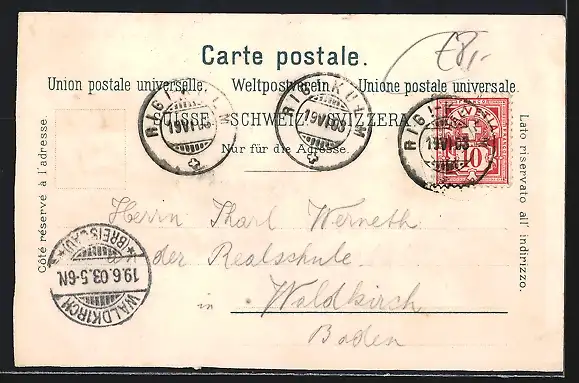 £8,-
Carte postale.
Union postale universelle. Weltpostverein. Unione postale universale.
SUISSE. SCHWEIZ. SVIZZERA.
Nur für die Adresse.
Côté réservé à l'adresse.
Lato riservato all' indirizzo.
RIGI-KULM
19 VI 03
RIGI-KULM
19 VI 03
RIGI-KULM
19 VI 03
HELVETIA
10
Herrn Karl Werneth
an der Realschule
in Waldkirch
Baden
WALDKIRCH
19.6.03.5-6N.
*(BREISGAU)*